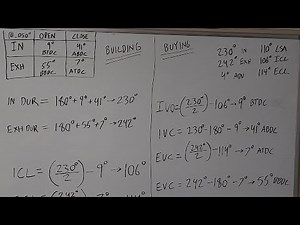 @.050" OPEN CLOSE
IN 9° BTDC 41° ABDC
EXH 55° BBDC 7° ATDC
BUILDING
BUYING
230° IN 110° LSA
242° EXH 106° ICL
4° ADV 114° ECL
IN DUR = 180°+9°+41° → 230°
EXH DUR = 180°+55°+7° → 242°
ICL = (230°/2) - 9° → 106°
IVO = (230°/2) - 106° → 9° BTDC
IVC = 230° - 180° - 9° → 41° ABDC
EVC = (242°/2) - 114° → 7° ATDC
EVC = 242° - 180° - 7° → 55° BBDC